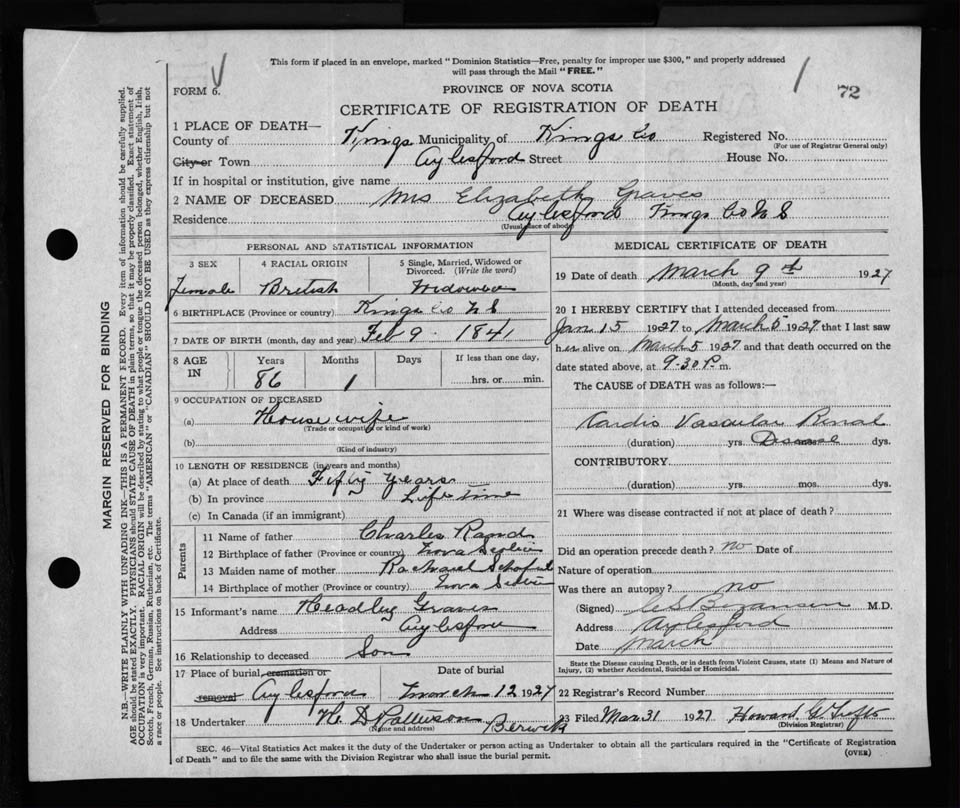 This form if placed in an envelope, marked "Dominion Statistics—Free, penalty for improper use $300," and properly addressed
will pass through the Mail "FREE."
FORM 6.
PROVINCE OF NOVA SCOTIA
1 72
CERTIFICATE OF REGISTRATION OF DEATH
1 PLACE OF DEATH—
County of Kings Municipality of Kings Co Registered No.
(For use of Registrar General only)
City or Town Aylesford Street House No.
If in hospital or institution, give name
2 NAME OF DECEASED Mrs Elizabeth Graves
Residence Aylesford Kings Co N S
(Usual place of abode)
PERSONAL AND STATISTICAL INFORMATION
3 SEX 4 RACIAL ORIGIN 5 Single, Married, Widowed or
Divorced. (Write the word)
Female British Widowed
6 BIRTHPLACE (Province or country) Kings Co N S
7 DATE OF BIRTH (month, day and year) Feb 9 1841
8 AGE IN Years Months Days If less than one day,
86 1 hrs. or min.
9 OCCUPATION OF DECEASED
(a) House wife
(Trade or occupation or kind of work)
(b)
(Kind of industry)
10 LENGTH OF RESIDENCE (in years and months)
(a) At place of death Fifty years
(b) In province Life time
(c) In Canada (if an immigrant)
Parents
11 Name of father Charles Rand
12 Birthplace of father (Province or country) Nova Scotia
13 Maiden name of mother Rachael
14 Birthplace of mother (Province or country) Nova Scotia
15 Informant's name Headley Graves
Address Aylesford
16 Relationship to deceased Son
17 Place of burial, cremation or Date of burial
removal Aylesford March 12 1927
18 Undertaker H. D Patterson Berwick
(Name and address)
MEDICAL CERTIFICATE OF DEATH
19 Date of death March 9th 1927
(Month, day and year)
20 I HEREBY CERTIFY that I attended deceased from
Jan 15 1927 to March 5 1927 that I last saw
her alive on March 5 1927 and that death occurred on the
date stated above, at 9-30 P. m.
The CAUSE of DEATH was as follows:—
Cardio Vascular Renal
(duration) yrs. Disease dys.
CONTRIBUTORY
(duration) yrs. mos. dys.
21 Where was disease contracted if not at place of death?
Did an operation precede death? no Date of
Nature of operation
Was there an autopsy? no
(Signed) Bezanson M.D.
Address Aylesford
Date March
State the Disease causing Death, or in death from Violent Causes, state (1) Means and Nature of
Injury, (2) whether Accidental, Suicidal or Homicidal.
22 Registrar's Record Number
23 Filed Mar 31 1927 Howard
(Division Registrar)
SEC. 46—Vital Statistics Act makes it the duty of the Undertaker or person acting as Undertaker to obtain all the particulars required in the "Certificate of Registration
of Death" and to file the same with the Division Registrar who shall issue the burial permit.
(OVER)
MARGIN RESERVED FOR BINDING
N.B.—WRITE PLAINLY WITH UNFADING INK—THIS IS A PERMANENT RECORD. Every item of information should be carefully supplied.
AGE should be stated EXACTLY. PHYSICIANS should STATE CAUSE OF DEATH in plain terms, so that it may be properly classified. Exact statement of
OCCUPATION is very important. RACIAL ORIGIN will be described by stating to what people or tongue the deceased person belonged, whether English, Irish,
Scotch, French, German, Russian, Ruthenian, etc. The terms "AMERICAN" or "CANADIAN" SHOULD NOT BE USED as they express citizenship but not
a race or people. See instructions on back of Certificate.